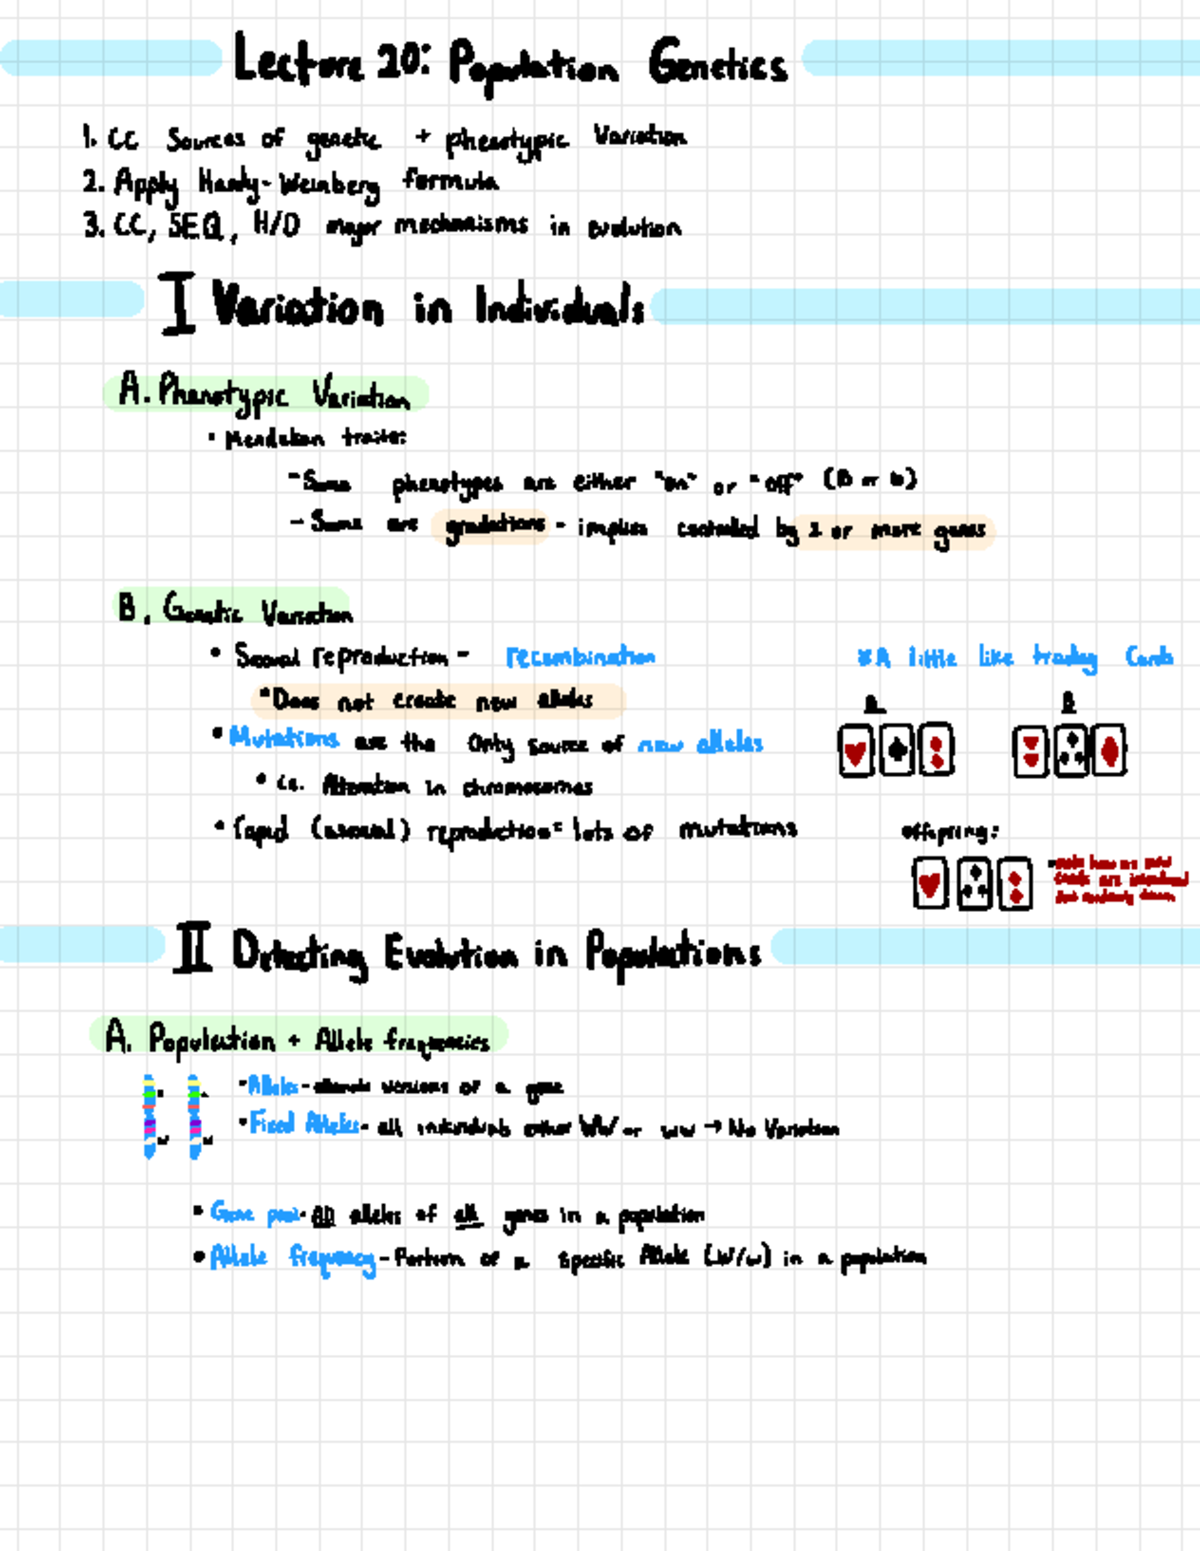 Lecture 20: Population Genetics
1. CC Sources of genetic + phenotypic Variation
2. Apply Hardy-Weinberg formula
3. CC, SEQ, H/D major mechanisms in evolution
I Variation in Individuals
A. Phenotypic Variation
• Mendelian traits:
- Some phenotypes are either "on" or "off" (B or b)
- Some are gradations - implies controlled by 2 or more genes
B. Genetic Variation
• Sexual reproduction - recombination
*A little like trading Cards
• Does not create new alleles
A B
• Mutations are the Only source of new alleles
• i.e. Alteration in chromosomes
• rapid (asexual) reproduction = lots of mutations
offspring:
note how no new
cards are introduced
II Detecting Evolution in Populations
A. Population + Allele frequencies
• Alleles - alternate versions of a gene
• Fixed Alleles - all individuals either WW or ww → No Variation
w w
• Gene pool - All alleles of all genes in a population
• Allele frequency - Portion of a specific Allele (W/w) in a population